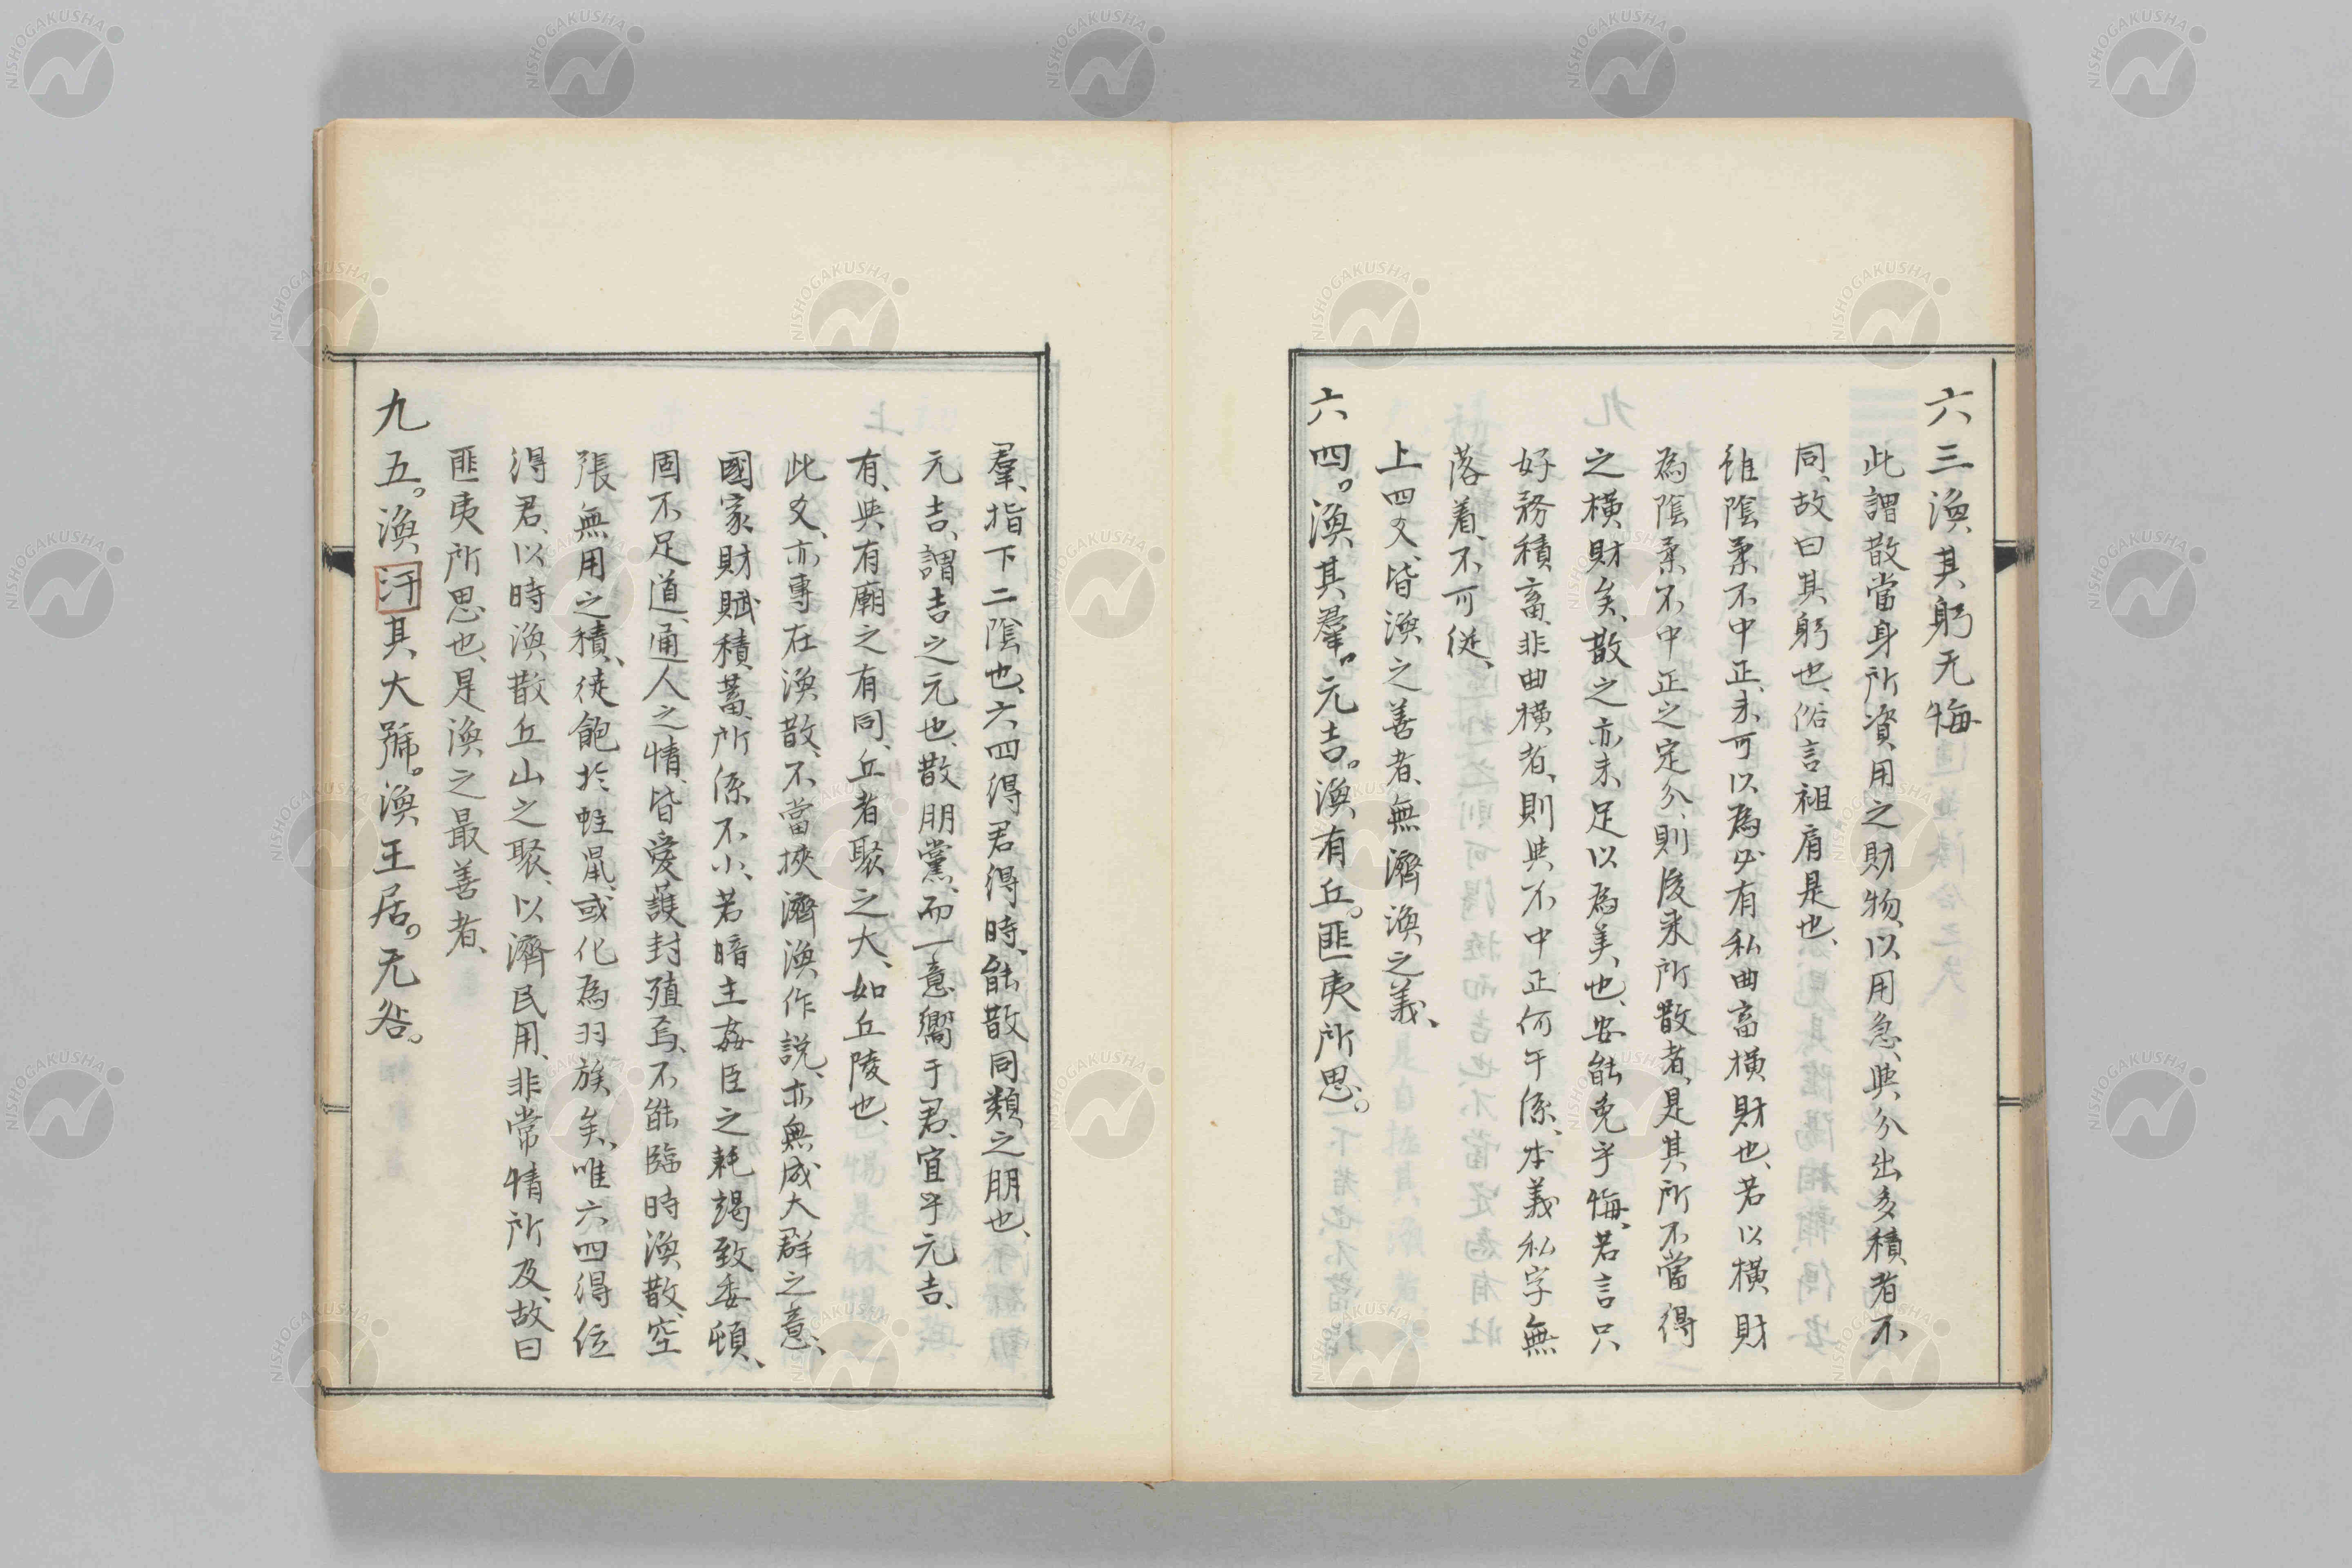 六三渙、其躬无悔
此謂散當身所資用之財物、以用急、與分出多積者不
同、故曰其躬也、俗言袒肩是也、
雖陰柔不中正、未可以為必有私曲畜橫財也、若以橫財
為陰柔不中正之定分、則後來所散者、是其所不當得
之橫財矣、散之亦未足以為美也、安能免乎悔、若言只
好務積畜、非曲橫者、則與不中正何干係、本義私字無
落着、不可從、
上四爻、皆渙之善者、無濟渙之義、
六四。渙其羣。元吉。渙有丘。匪夷所思。
羣、指下二陰也、六四得君得時、能散同類之朋也、
元吉、謂吉之元也、散朋黨、而一意嚮于君、宜乎元吉、
有、與有廟之有同、丘者聚之大、如丘陵也、
此爻、亦專在渙散、不當挾濟渙作説、亦無成大群之意、
國家財賦積蓄、所係不小、若暗主姦臣之耗竭致委頓、
固不足道、通人之情、皆愛護封殖焉、不能臨時渙散、空
張無用之積、徒飽於蛀鼠、或化為羽族矣、唯六四得位
得君、以時渙散丘山之聚、以濟民用、非常情所及、故曰
匪夷所思也、是渙之最善者、
九五。渙汗其大號。渙王居。无咎。
NISHOGAKUSHA